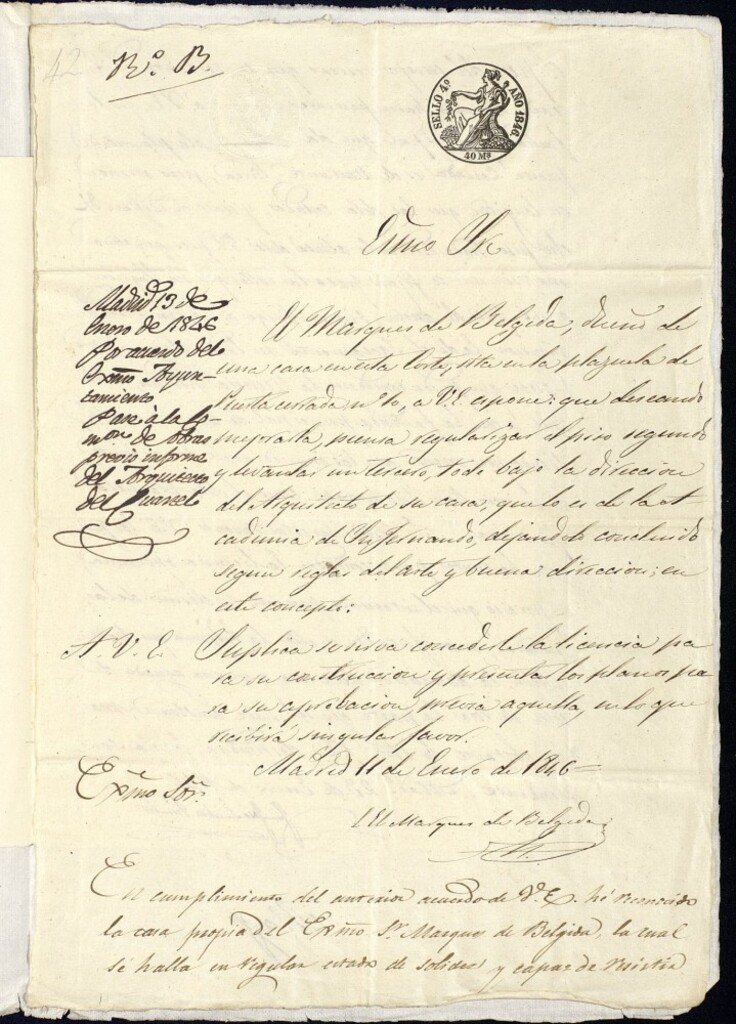 42
Rº. B.
SELLO 4º AÑO 1846.
40 Mº
Exmo Sr
Madrid 13 de
Enero de 1846
Por acuerdo del
Exmo Ayun-
tamiento
Pase à la Co-
mon. de obras
previo informe
del Arquitecto
del Cuartel
El Marques de Belgida, dueño de
una casa en esta Corte, sita en la plazuela de
Puerta cerrada nº 10, a V.E. espone: que deseando
mejorarla, piensa regularizar el piso segundo
y levantar un tercero, todo bajo la direccion
del Arquitecto de su casa, que lo es de la A
cademia de Sn Fernando, dejandole concluido
segun reglas del arte y buena direccion; en
este concepto:
A. V. E. Suplica se sirva concederle la licencia pa
ra su construccion y presentar los planos pa
ra su aprobacion previa aquella, en lo que
recibirá singular favor.
Madrid 11 de Enero de 1846=
El Marques de Belgida
Exmo Sor.
En cumplimiento del anterior acuerdo de V.E. hé reconocido
la casa propia del Exmo Sr Marques de Belgida, la cual
sé halla en regular estado de solidez y capaz de resistir